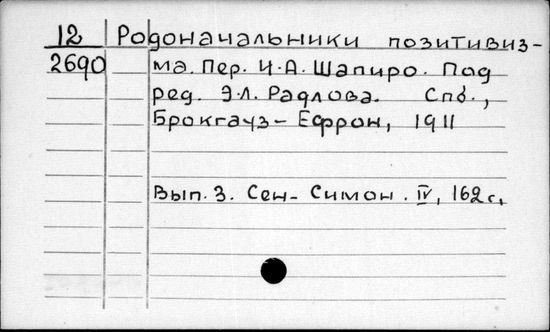 12 Родоначальники позитивиз-
2690 ма. Пер. И.А. Шапиро. Под
ред. Э.Л. Радлова. Спб.,
Брокгауз-Ефрон, 1911
Вып. 3. Сен-Симон. IV, 162 с.